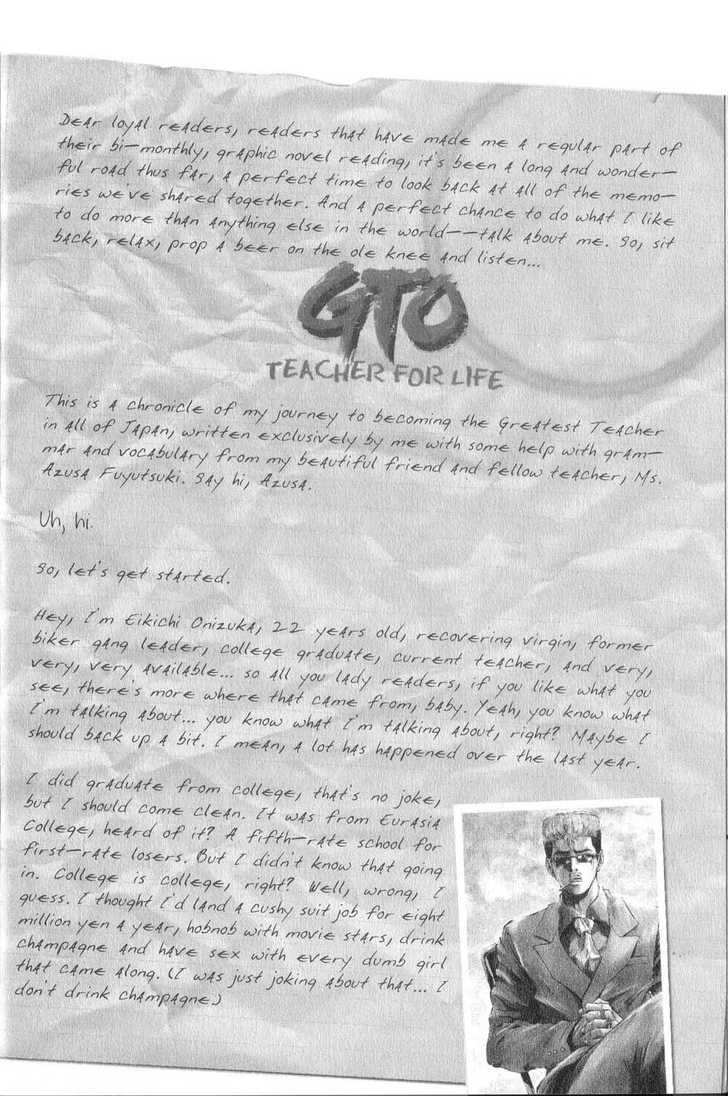 Dear loyal readers, readers that have made me a regular part of
their bi-monthly, graphic novel reading, it's been a long and wonder-
ful road thus far, a perfect time to look back at all of the memo-
ries we've shared together. And a perfect chance to do what I like
to do more than anything else in the world--talk about me. So, sit
back, relax, prop a beer on the ole knee and listen...
GTO
TEACHER FOR LIFE
This is a chronicle of my journey to becoming the Greatest Teacher
in all of Japan, written exclusively by me with some help with gram-
mar and vocabulary from my beautiful friend and fellow teacher, Ms.
Azusa Fuyutsuki. Say hi, Azusa.
Uh, hi.
So, let's get started.
Hey, I'm Eikichi Onizuka, 22 years old, recovering virgin, former
biker gang leader, college graduate, current teacher, and very,
very, very available... so all you lady readers, if you like what you
see, there's more where that came from, baby. Yeah, you know what
I'm talking about... you know what I'm talking about, right? Maybe I
should back up a bit. I mean, a lot has happened over the last year.
I did graduate from college, that's no joke,
but I should come clean. It was from Eurasia
College, heard of it? A fifth-rate school for
first-rate losers. But I didn't know that going
in. College is college, right? Well, wrong, I
guess. I thought I'd land a cushy suit job for eight
million yen a year, hobnob with movie stars, drink
champagne and have sex with every dumb girl
that came along. (I was just joking about that... I
don't drink champagne.)